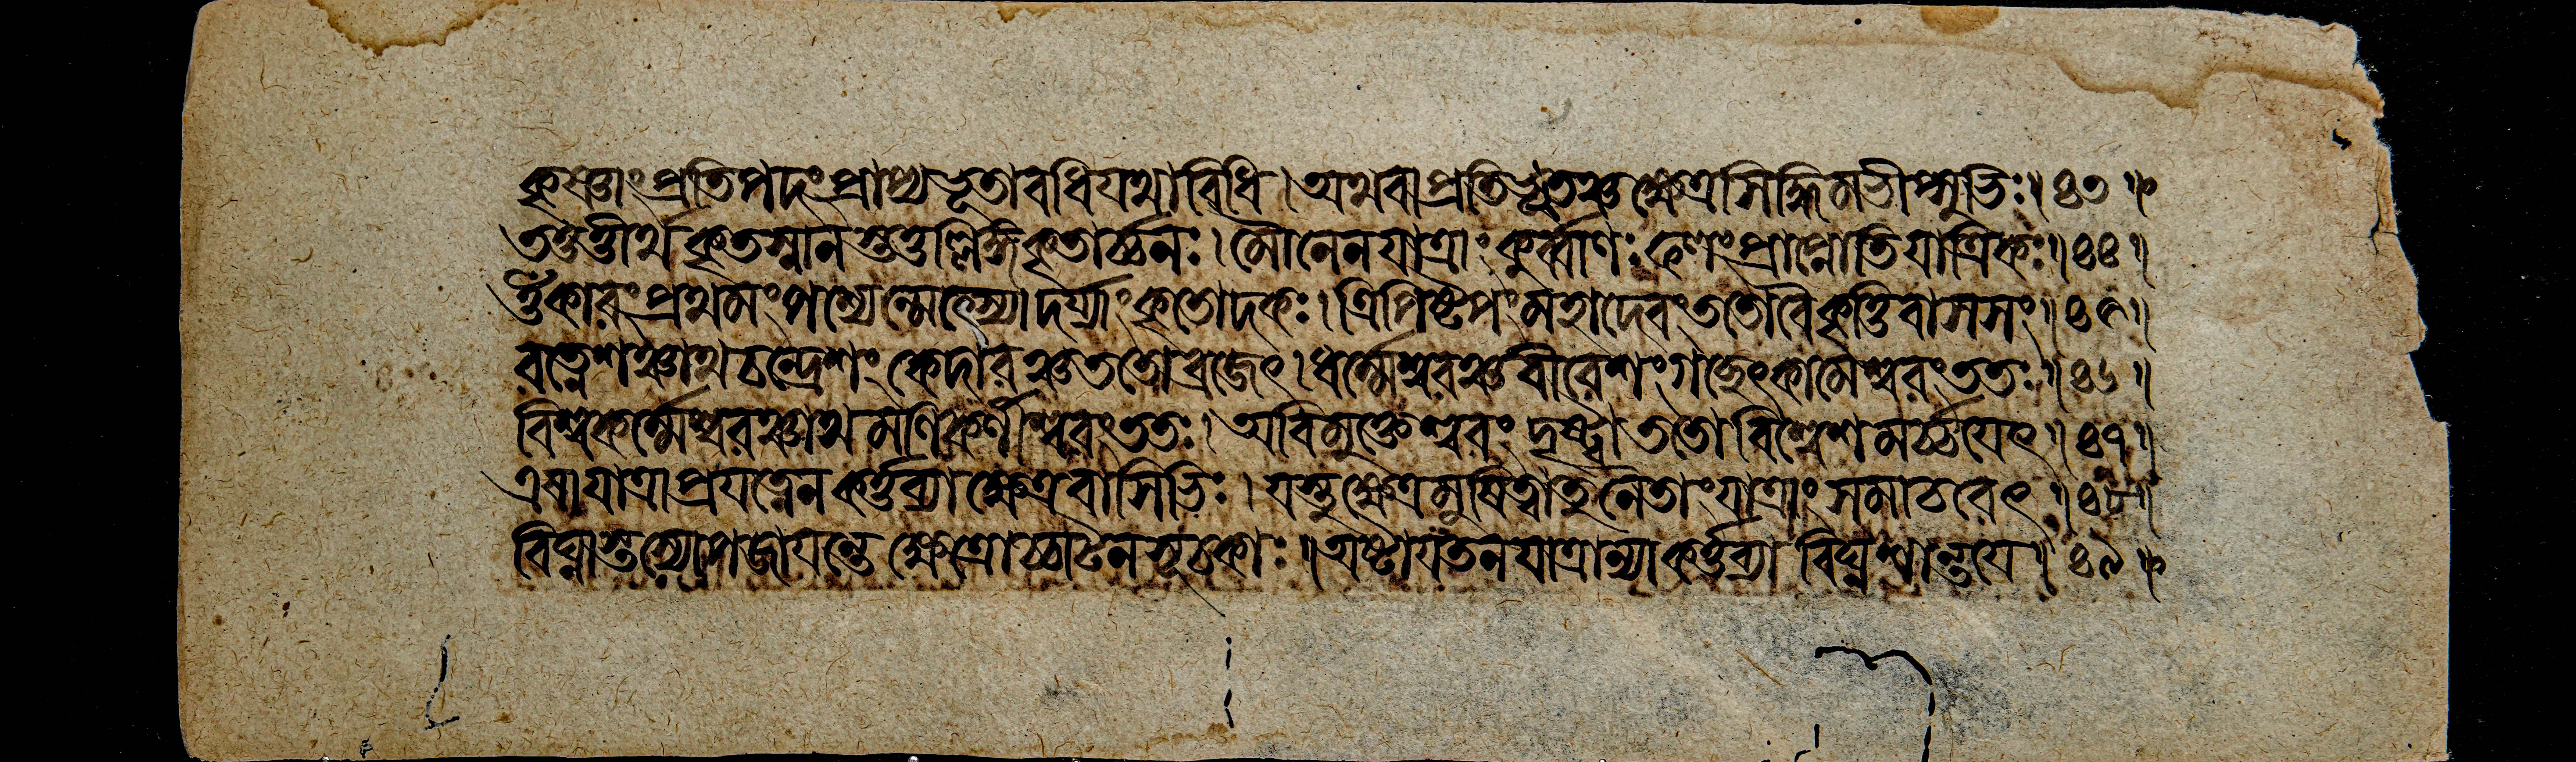 কৃষ্ণাং প্রতিপদং প্রাপ্য ভূতাবধি যথাবিধি । অথবা প্রতিভূতঞ্চ ক্ষেত্রসিদ্ধিমভীপ্সুভিঃ ॥ ৪৩ ॥
তত্তত্তীর্থকৃতস্নানস্তত্তল্লিঙ্গকৃতার্চ্চনঃ । মৌনেন যাত্রাং কুর্ব্বাণঃ ফলং প্রাপ্নোতি যাত্রিকঃ ॥ ৪৪ ॥
ওঁকারং প্রথমং পশ্যেন্মৎস্যোদর্য্যাং কৃতোদকঃ । ত্রিপিষ্টপং মহাদেবং ততো বৈ কৃত্তিবাসসং ॥ ৪৫ ॥
রত্নেশঞ্চাথ চন্দ্রেশং কেদারঞ্চ ততো ব্রজেৎ । ধর্ম্মেশ্বরঞ্চ বীরেশং গচ্ছেৎ কামেশ্বরং ততঃ ॥ ৪৬ ॥
বিশ্বকর্ম্মেশ্বরঞ্চাথ মণিকর্ণীশ্বরং ততঃ । অবিমুক্তেশ্বরং দৃষ্ট্বা ততো বিশ্বেশমর্চ্চয়েৎ ॥ ৪৭ ॥
এষা যাত্রা প্রযত্নেন কর্ত্তব্যা ক্ষেত্রবাসিভিঃ । যস্তু ক্ষেত্রমুষিত্বা তু নৈতাং যাত্রাং সমাচরেৎ ॥ ৪৮ ॥
বিঘ্নাস্তস্যোপজায়ন্তে ক্ষেত্রোচ্চাটনসূচকাঃ ॥ অষ্টায়তনযাত্রান্যা কর্ত্তব্যা বিঘ্নশান্তয়ে ॥ ৪৯ ॥